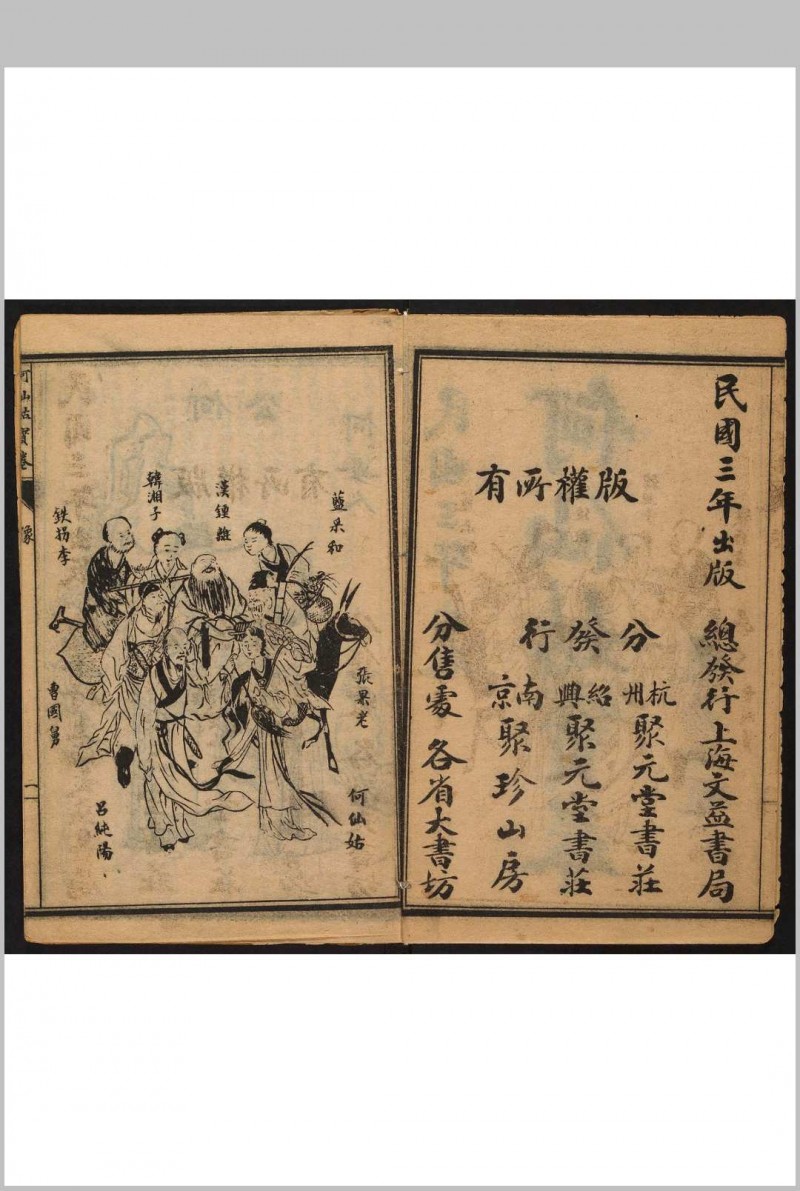 民國三年出版
總發行上海文益書局
版權所有
分發行
杭州聚元堂書莊
紹興聚元堂書莊
南京聚珍山房
分售處各省大書坊
藍采和
漢鍾離
韓湘子
鉄拐李
張果老
何仙姑
曹國舅
呂純陽
何仙姑寶卷
像
二